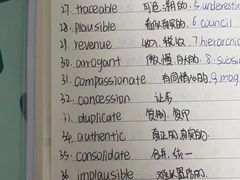 27. traceable 可追溯的 5. understand
28. plausible 看似真实的 6. council
29. revenue 收入, 税收 7. hierarchic
30. arrogant 傲慢自大的 8. subsi
31. compassionate 有同情心的 9. mag
32. concession 让步
33. duplicate 复制, 复印
34. authentic 真正的, 真实的
35. consolidate 合并, 统一
36. implausible